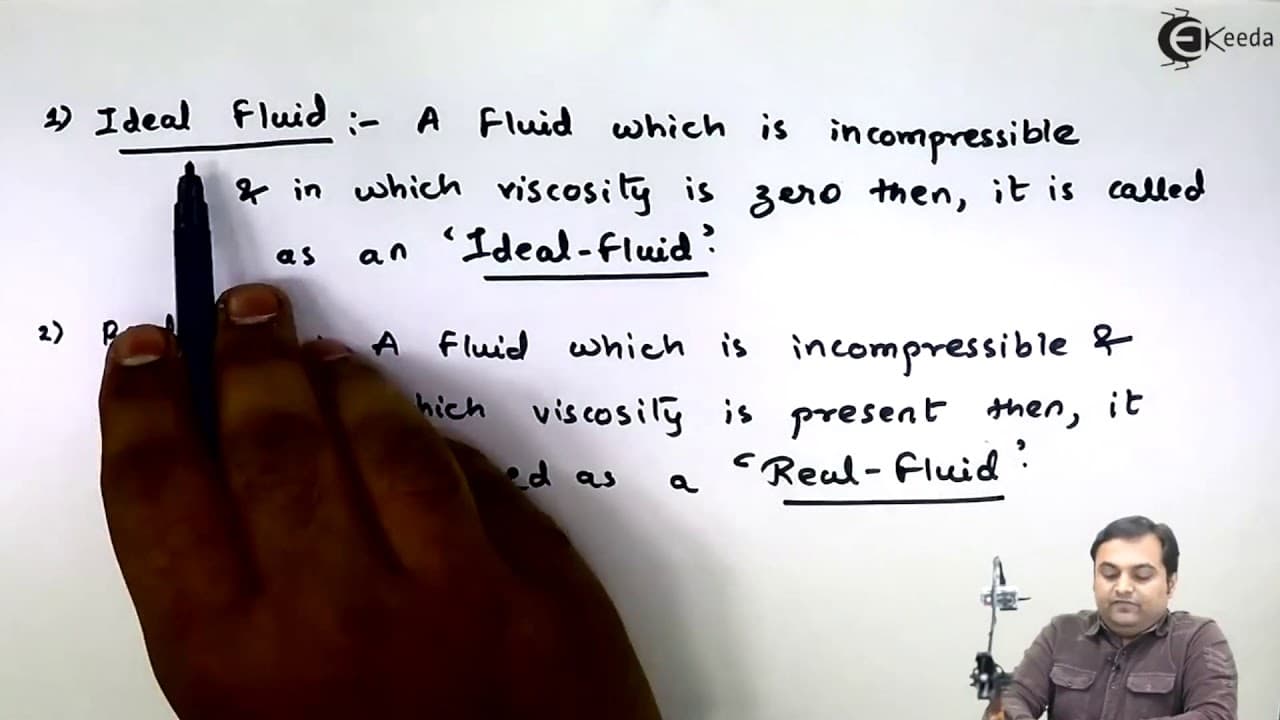 Keeda
1) Ideal Fluid :- A Fluid which is incompressible
& in which viscosity is zero then, it is called
as an 'Ideal-Fluid'.
2) A Fluid which is incompressible &
viscosity is present then, it
as a 'Real-Fluid'.